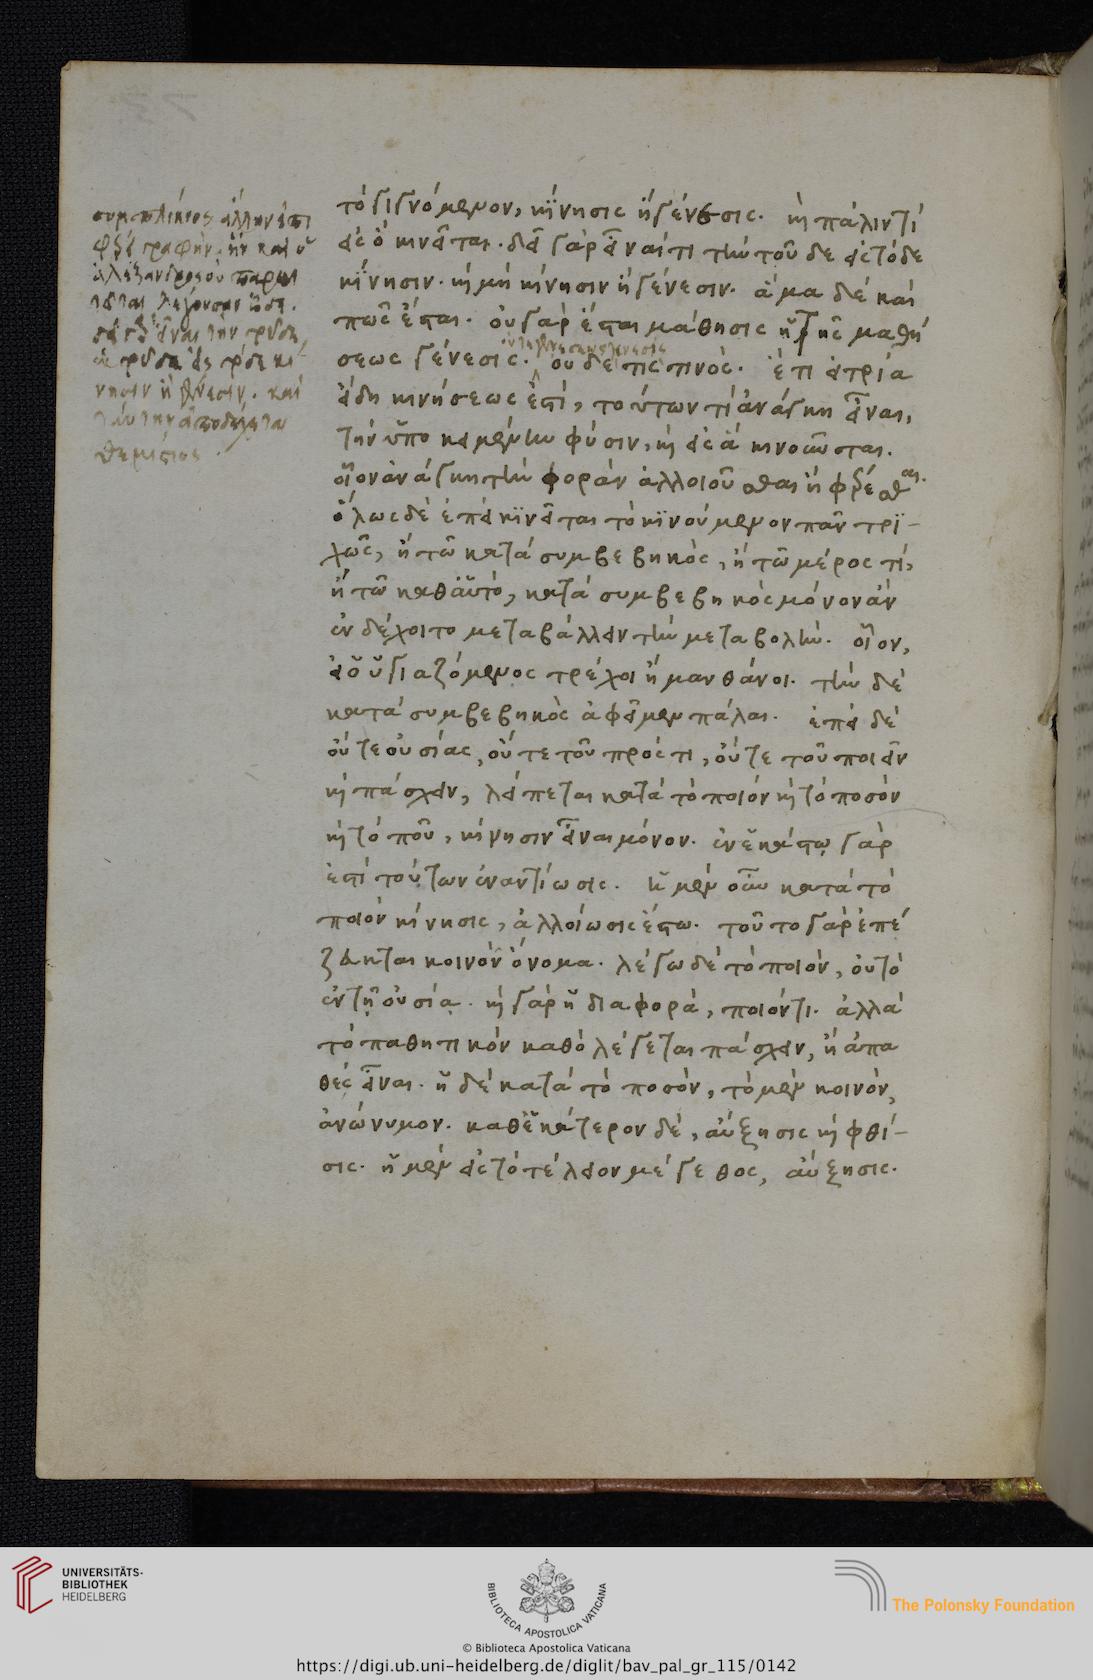 τὸ γιγνόμενον, κίνησις ἢ γένεσις. καὶ πάλιν τί
εἰς ὃ κινεῖται. δεῖ γὰρ εἶναί τι τὴν τοῦδε εἰς τόδε
κίνησιν. καὶ μὴ κίνησιν ἢ γένεσιν. ἅμα δὲ καὶ
πῶς ἔσται. οὐ γὰρ ἔσται μάθησις ἡ τῆς μαθή
σεως γένεσις. οὐδέ τις τινός. ἔτι εἰ τρία
εἴδη κινήσεως ἐστί, τούτων τί ἀνάγκη εἶναι,
τὴν ὑποκειμένην φύσιν, καὶ εἰς ἃ κινοῦνται.
οἷον ἀνάγκη τὴν φορὰν ἀλλοιοῦσθαι ἢ φέρεσθαι.
ὅλως δὲ ἐπεὶ κινεῖται τὸ κινούμενον πᾶν τρι-
χῶς, ἢ τῶ κατὰ συμβεβηκὸς, ἢ τῶ μέρος τί,
ἢ τῶ καθ αὑτό, κατὰ συμβεβηκὸς μόνον ἂν
ἐνδέχοιτο μεταβάλλειν τὴν μεταβολήν. οἷον,
εἰ ὁ ὑγιαζόμενος τρέχοι ἢ μανθάνοι. τὴν δὲ
κατὰ συμβεβηκὸς ἀφεῖμεν πάλαι. ἐπεὶ δὲ
οὔτε οὐσίας, οὔτε τοῦ πρός τι, οὔτε τοῦ ποιεῖν
καὶ πάσχειν, λείπεται κατὰ τὸ ποιόν καὶ τὸ ποσὸν
καὶ τὸ ποῦ, κίνησιν εἶναι μόνον. ἐν ἑκάστῳ γάρ
ἐστι τούτων ἐναντίωσις. ἡ μὲν οὖν κατὰ τὸ
ποιὸν κίνησις, ἀλλοίωσις ἔστω. τοῦτο γὰρ ἐπέ
ζευκται κοινὸν ὄνομα. λέγω δὲ τὸ ποιόν, οὐ τὸ
ἐν τῇ οὐσίᾳ. καὶ γὰρ ἡ διαφορὰ, ποιόν τι. ἀλλὰ
τὸ παθητικόν καθὸ λέγεται πάσχειν, ἢ ἀπα
θὲς εἶναι. ἡ δὲ κατὰ τὸ ποσόν, τὸ μὲν κοινόν,
ἀνώνυμον. καθ ἑκάτερον δέ, αὔξησις καὶ φθί-
σις. ἡ μὲν εἰς τὸ τέλειον μέγεθος, αὔξησις.
ἀλεξάνδρος
καὶ
θεμίστιος
UNIVERSITÄTS-
BIBLIOTHEK
HEIDELBERG
BIBLIOTECA APOSTOLICA VATICANA
The Polonsky Foundation
© Biblioteca Apostolica Vaticana
https://digi.ub.uni-heidelberg.de/diglit/bav_pal_gr_115/0142